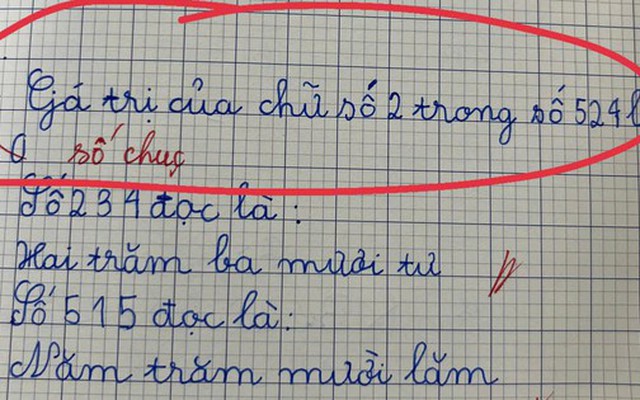 Gá trị của chữ số 2 trong số 524 l
số chục
Số 234 đọc là:
Hai trăm ba mươi tư
Số 515 đọc là:
Năm trăm mười lăm